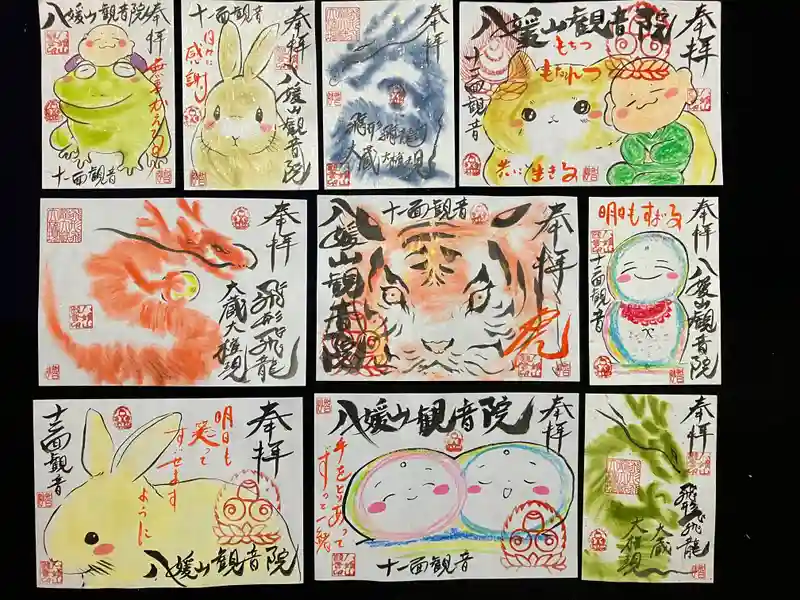 奉拝
八媛山観音院
無事かえる
十一面観音
奉拝
十一面観音
八媛山観音院
日々に
感謝
飛形飛龍
大蔵大権現
奉拝
八媛山観音院
もちつ
もたれつ
十一面観音
共に生きる
奉拝
飛形飛龍
大蔵大権現
奉拝
十一面観音
八媛山観音院
虎
奉拝
八媛山観音院
明日もすばる
十一面観音
奉拝
明日も
笑って
すごせます
ように
十一面観音
八媛山観音院
奉拝
八媛山観音院
手をとりあって
ずっと一緒
十一面観音
奉拝
飛形飛龍
大蔵
大権現